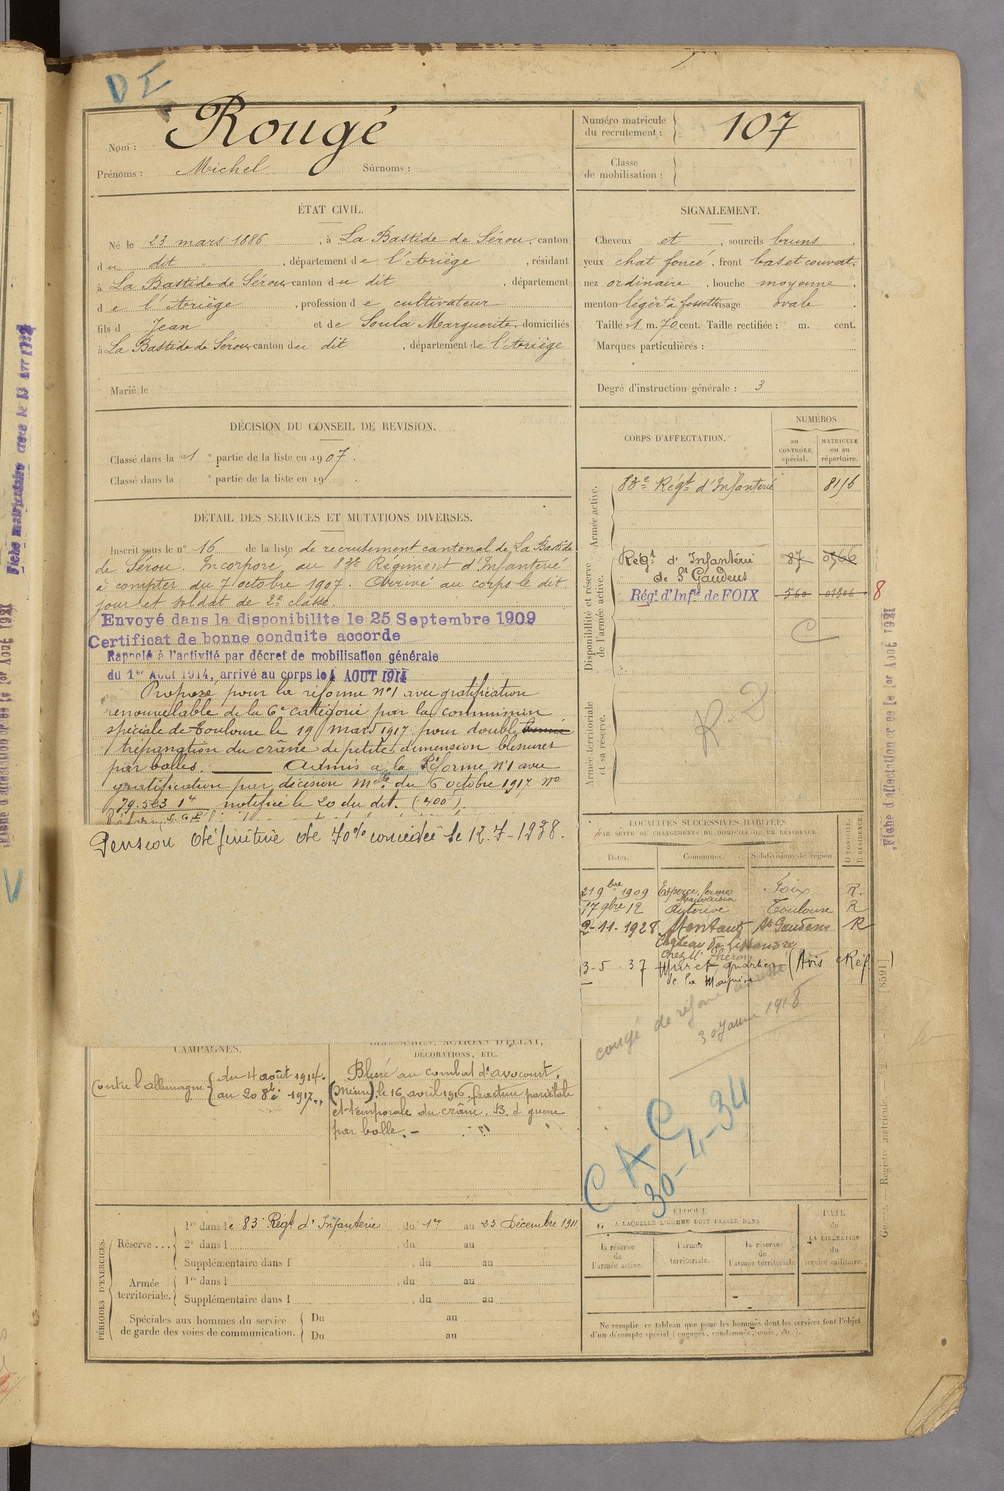 DI
Nom : Rougé
Prénoms : Michel Surnoms :
Numéro matricule
du recrutement : 107
Classe
de mobilisation :
ÉTAT CIVIL.
Né le 23 mars 1886, à La Bastide de Sérou, canton
du dit, département de l'Ariège, résidant
à La Bastide de Sérou canton du dit, département
de l'Ariège, profession de cultivateur
fils d Jean et de Soula Marguerite, domiciliés
à La Bastide de Sérou, canton du dit, département de l'Ariège
Marié le
SIGNALEMENT.
Cheveux et, sourcils bruns,
yeux chat foncé, front bas et couvert,
nez ordinaire, bouche moyenne,
menton léger à fossette visage ovale.
Taille : 1 m. 70 cent. Taille rectifiée : m. cent.
Marques particulières :
Degré d'instruction générale : 3
DÉCISION DU CONSEIL DE REVISION.
Classé dans la 1 e partie de la liste en 1907.
Classé dans la e partie de la liste en 19
DÉTAIL DES SERVICES ET MUTATIONS DIVERSES.
Inscrit sous le n° 16 de la liste de recrutement cantonal de La Bastide
de Sérou. Incorporé au 83e Régiment d'Infanterie
à compter du 7 octobre 1907. Arrivé au corps le dit
jour et soldat de 2e classe
Envoyé dans la disponibilite le 25 Septembre 1909
Certificat de bonne conduite accorde
Rappelé à l'activité par décret de mobilisation générale
du 1er Aout 1914, arrivé au corps le 4 AOUT 1914
Proposé pour la réforme n°1 avec gratification
renouvelable de la 6e catégorie par la commission
spéciale de Toulouse le 19 mars 1917 pour double
trépanation du crâne de petite dimension blessures
par balles. Admis a la Réforme N°1 avec
gratification par décision Mlle du 6 octobre 1917 no
79.563 notifiée le 20 du dit. (400f).
Pension définitive de 70% concédée le 12-7-1938.
CORPS D'AFFECTATION.
NUMÉROS
au
CONTRÔLE
spécial.
MATRICULE
ou au
répertoire.
Armée active.
83e Regt d'Infanterie 8116
Disponibilité et réserve
de l'armée active.
Régt d'Infanterie 87 0566
de St Gaudens
Régt d'Infie de FOIX 560 01206 8
C
Armée territoriale
et sa réserve.
R. 2
LOCALITÉS SUCCESSIVES HABITÉES
PAR SUITE DE CHANGEMENTS DE DOMICILE OU DE RÉSIDENCE.
Dates. Communes. Subdivisions de région. D DOMICILE. R RÉSIDENCE.
21 9bre 1909 Foix R.
17 9bre 12 Auterive Toulouse R
2-11-1928 Montaut St Gaudens R
Château de
chez Mr Théron
3-5-37 Muret quartier (Avis Réf.)
de la
congé de réforme
30 Janv 1918
CAMPAGNES.
Contre l'allemagne du 4 août 1914.
au 20 8bre 1917.
BLESSURES, ACTIONS D'ÉCLAT,
DÉCORATIONS, ETC.
Blessé au combat d'avocourt
(Meuse), le 16 avril 1916, fracture pariétale
et temporale du crâne. B. d. guerre
par balle.
CAG
30-4-34
PÉRIODES D'EXERCICES.
Réserve... 1re dans le 83e Régt d'Infanterie du 1er au 23 Décembre 1911
2e dans l , du au
Supplémentaire dans l , du au
Armée
territoriale. 1re dans l , du au
Supplémentaire dans l , du au
Spéciales aux hommes du service
de garde des voies de communication. Du au
Du au
ÉPOQUE
À LAQUELLE L'HOMME DOIT PASSER DANS
la réserve
de
l'armée active.
l'armée
territoriale.
la réserve
de
l'armée territoriale
DATE
de
LA LIBÉRATION
du
service militaire.
Ne remplir ce tableau que pour les hommes dont les services font l'objet
d'un décompte spécial (engagés, condamnés, omis, etc.)
Fiche d'affectation créée le 1er Août 1921